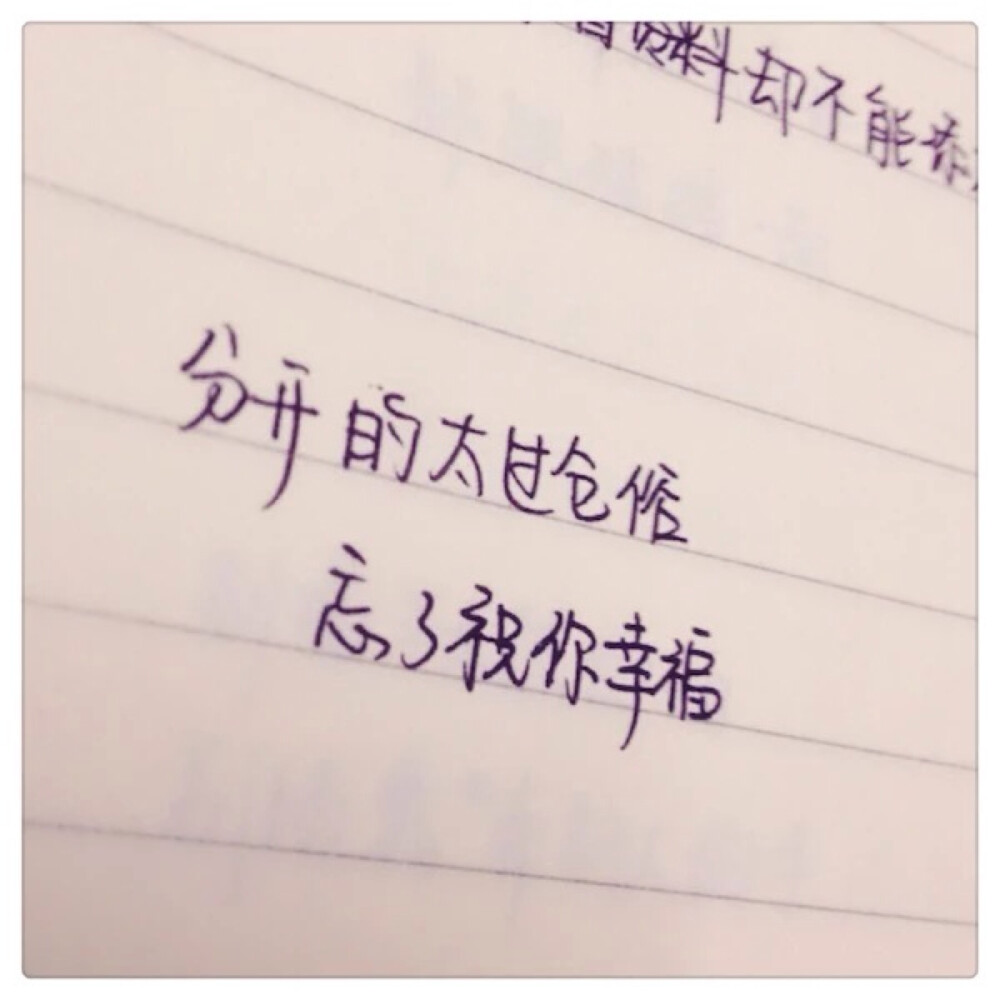 资料却不能
分开的太过仓促
忘了祝你幸福